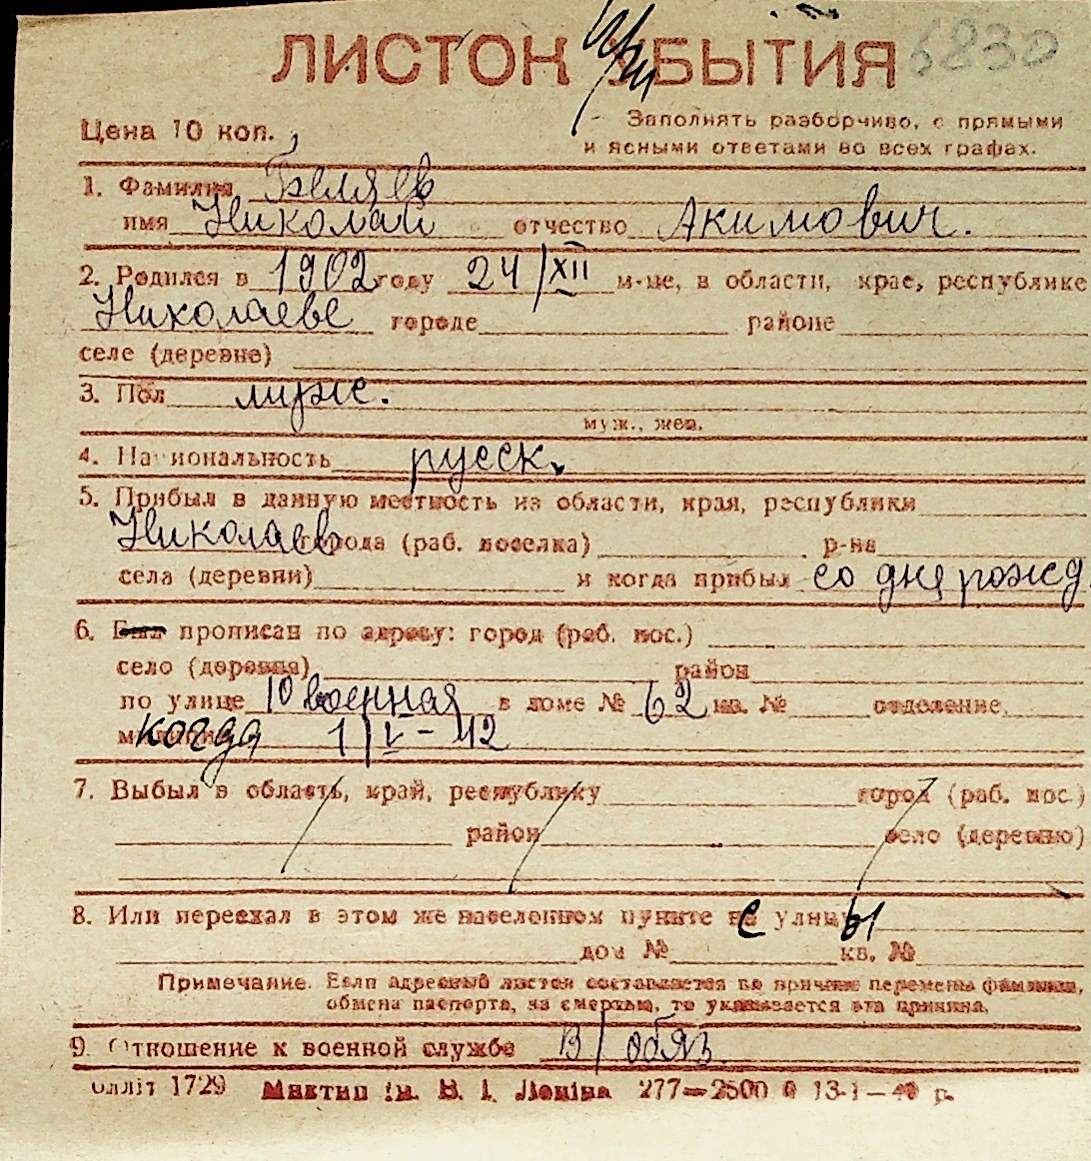 ЛИСТОК УБЫТИЯ 6830
При
Цена 10 коп.
Заполнять разборчиво, с прямыми
и ясными ответами во всех графах.
1. Фамилия Беляев
имя Николай отчество Акимович.
2. Родился в 1902 году 24/XII м-це, в области, крае, республике
Николаеве городе районе
селе (деревне)
3. Пол муж.
муж., жен.
4. Национальность русск.
5. Прибыл в данную местность из области, края, республики
Николаев города (раб. поселка) р-на
села (деревни) и когда прибыл со дня рожд
6. Был прописан по адресу: город (раб. пос.)
село (деревня) район
по улице 10 военная в доме № 62 кв. № отделение
когда 1/V-42
7. Выбыл в область, край, республику город (раб. пос.)
район село (деревню)
8. Или переехал в этом же населенном пункте с улицы
дом № кв. №
Примечание. Если адресный листок составляется по причине перемены фамилии,
обмена паспорта, за смертью, то указывается эта причина.
9. Отношение к военной службе В/обяз.
олліт 1729 Миктип ім. В. І. Леніна 277—2500 13-1—40 р.